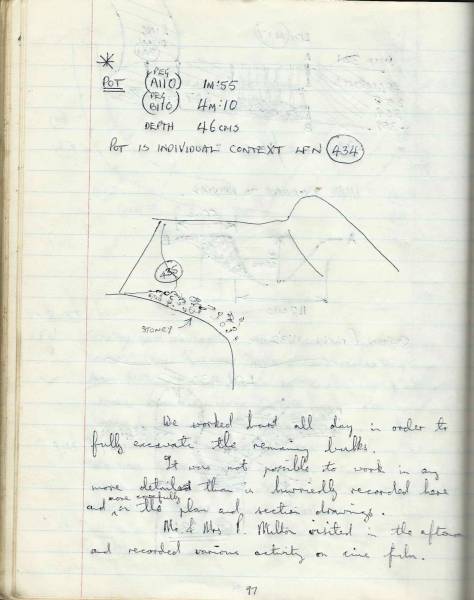 *
POT (PEG A110) 1M:55
(PEG B110) 4M:10
DEPTH 46CMS
POT IS INDIVIDUAL CONTEXT LFN 434
435
STONEY
We worked hard all day in order to
fully excavate the remaining bulks.
It was not possible to work in any
more detailed than is hurriedly recorded here
and more carefully on the plan and section drawings.
Mr & Mrs P. Melton visited in the afternoon
and recorded various activity on cine film.
97